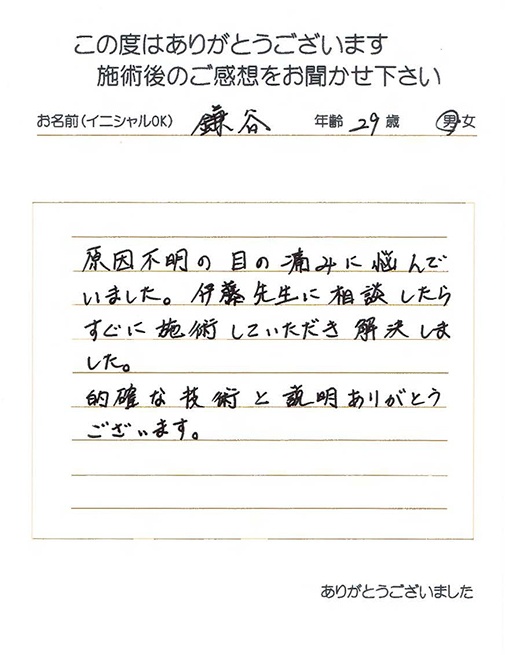 この度はありがとうございます
施術後のご感想をお聞かせ下さい
お名前(イニシャルOK) 鎌谷 年齢 29 歳 男・女
原因不明の目の痛みに悩んで
いました。伊藤先生に相談したら
すぐに施術していただき解決しま
した。
的確な技術と説明ありがとう
ございます。
ありがとうございました